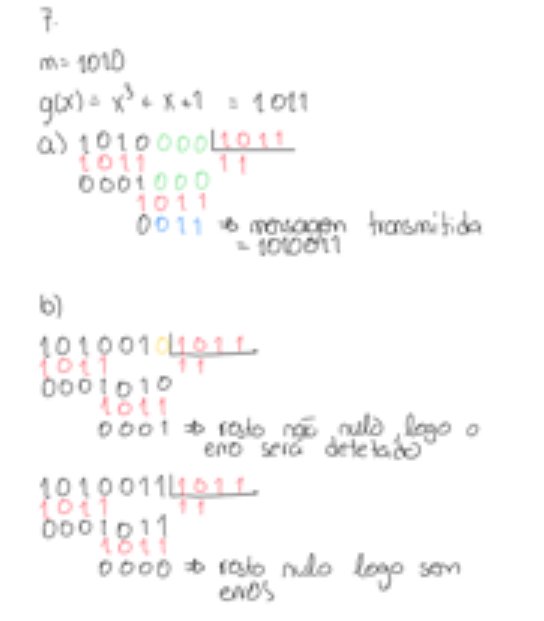 7.
m = 1010
g(x) = x³ + x + 1 = 1011
a) 1010000 1011
1011 11
0001000
1011
0011 => mensagem transmitida
= 1010011
b)
1010010 1011
1011 11
0001010
1011
0001 => resto não nulo, logo o
erro será detetado
1010011 1011
1011 11
0001011
1011
0000 => resto nulo logo sem
erros